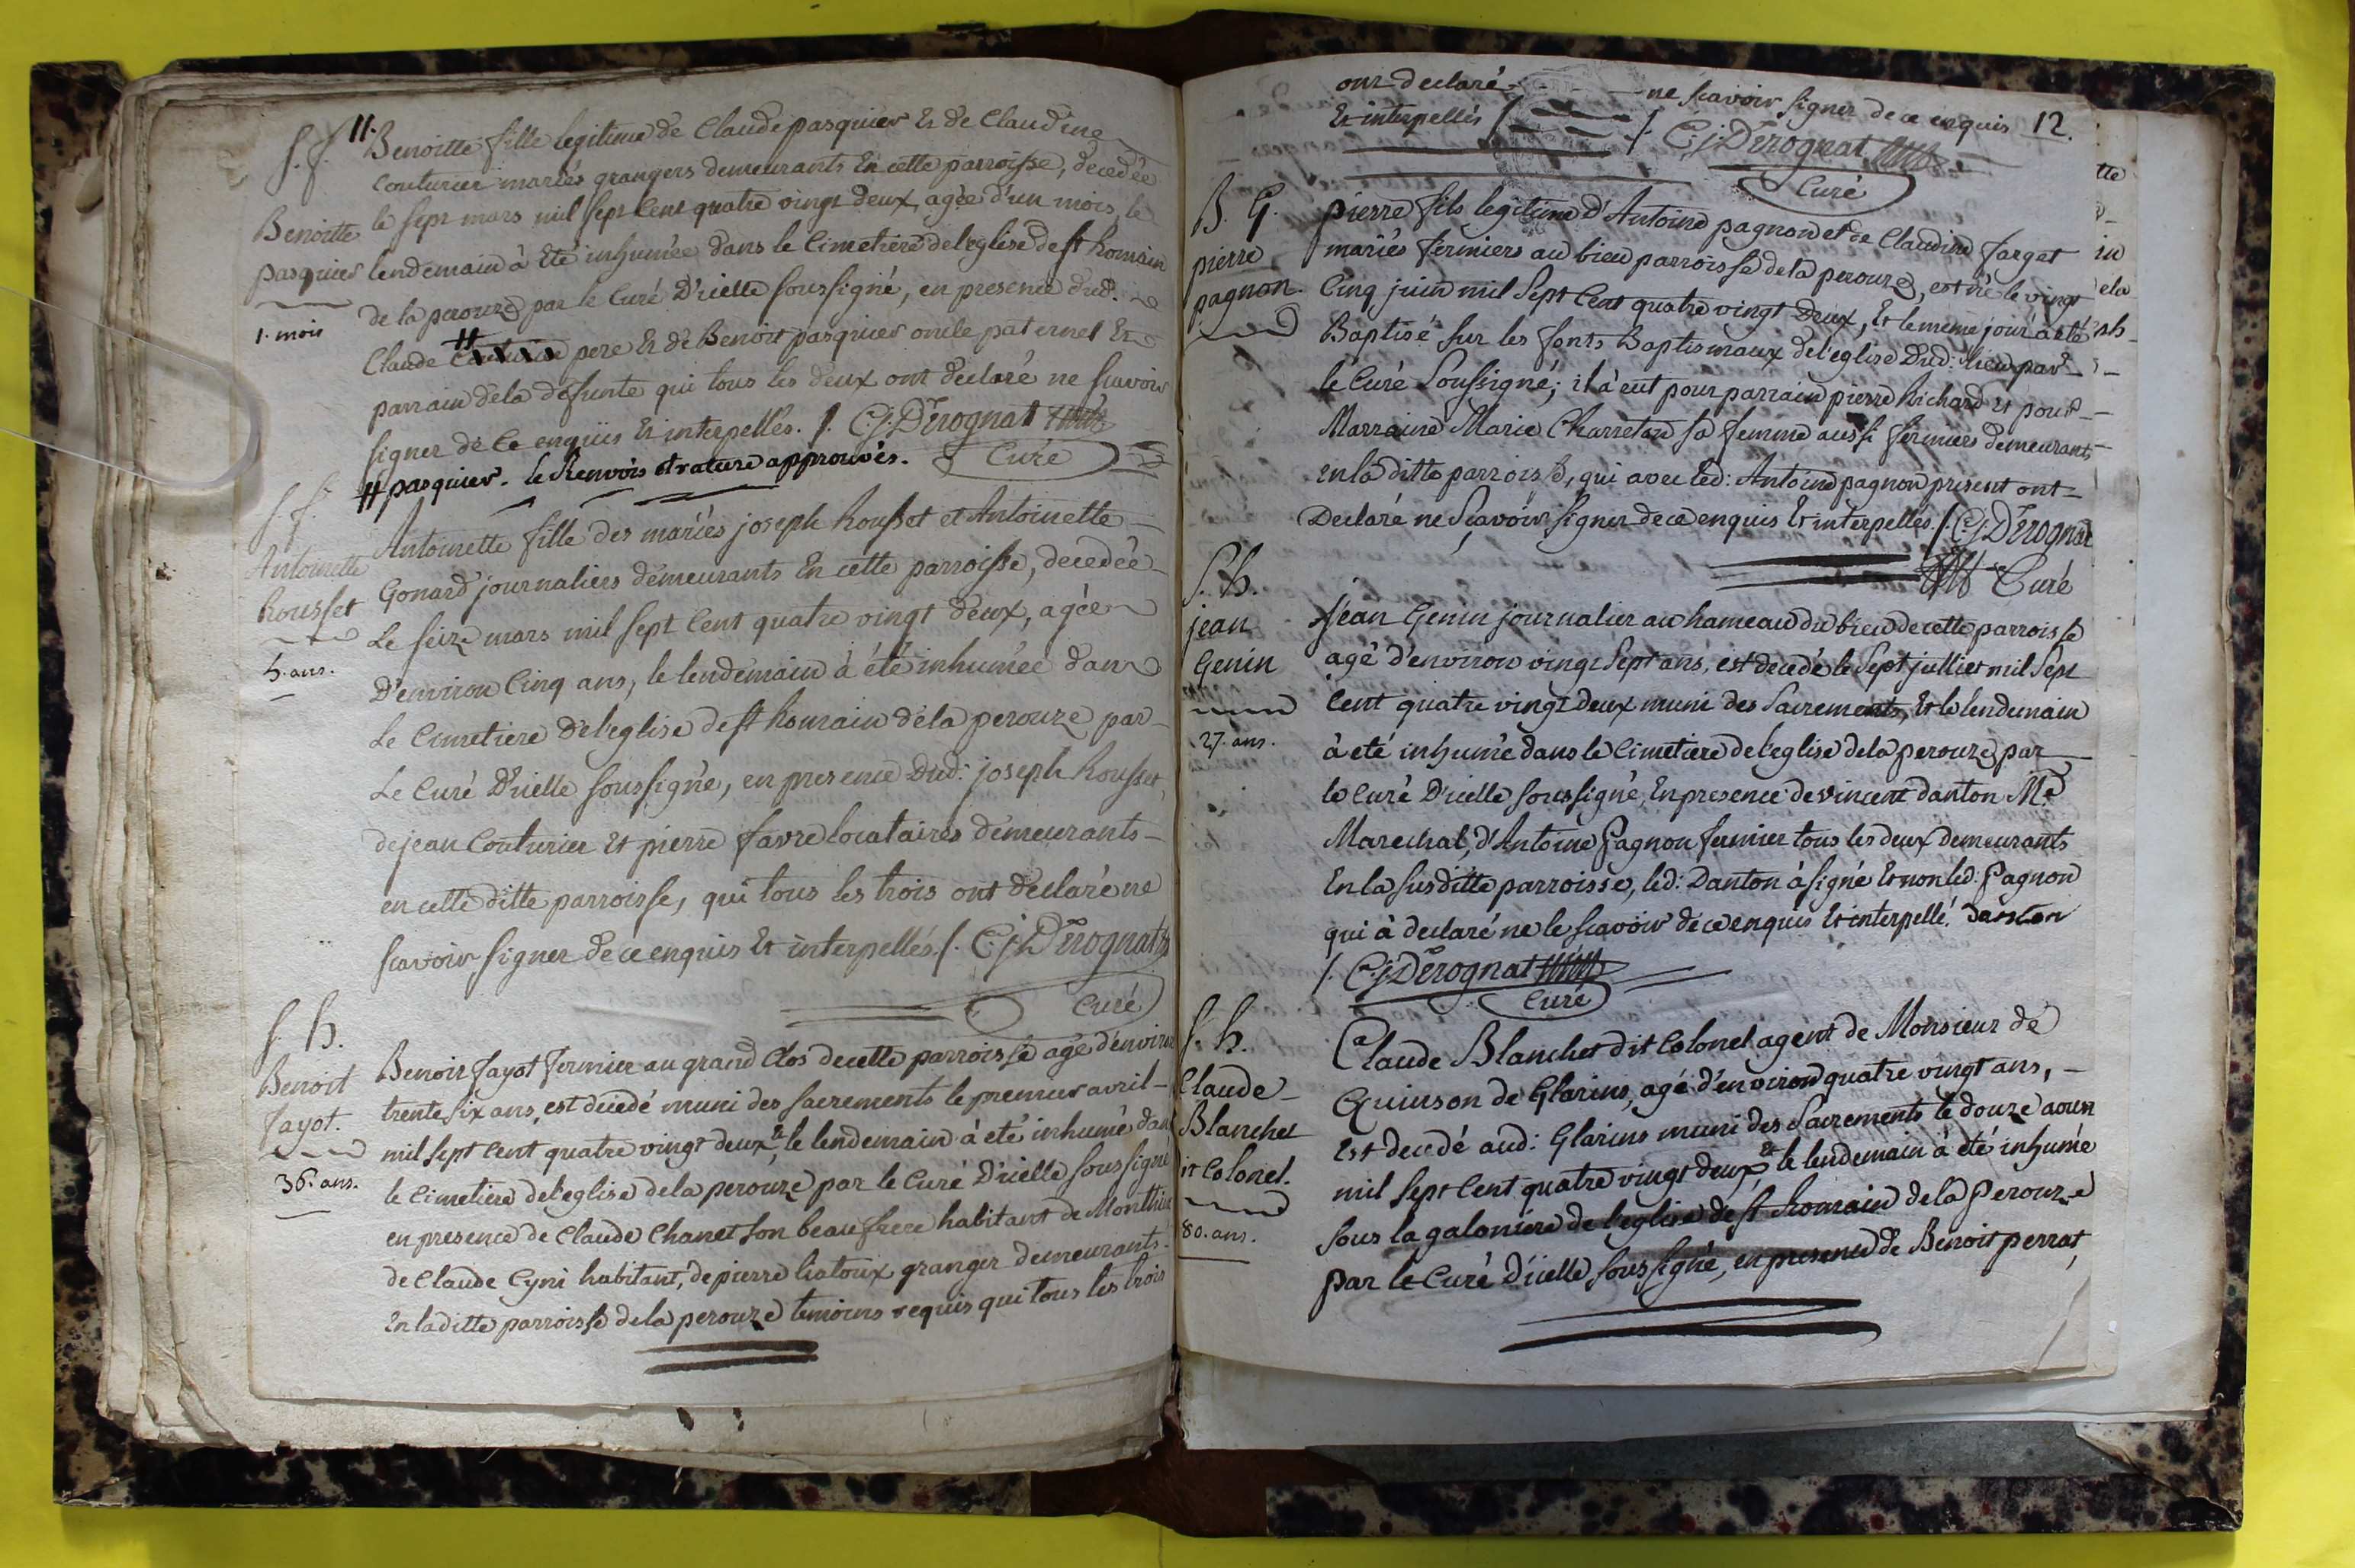 11.
S. f.
Benoitte
pasquier
1. mois
Benoitte fille legitime de Claude pasquier Et de Claudine
Couturier mariés grangers demeurants En cette parroisse, decedée
le sept mars mil sept Cent quatre vingt deux, agée d'un mois, le
lendemain à Eté inhumée dans le Cimetiere de l'eglise de st Romain
de la perouze par le Curé D'icelle soussigné, en presence dud.
Claude pere Et de Benoit pasquier oncle paternel Et
parrain de la defunte qui tous les deux ont declaré ne scavoir
signer de Ce enquis Et interpellés. /. C:j: Dérognat
Curé
# pasquier. le Renvois et rature approuvés.
S. f.
Antoinette
Rousset
5. ans.
Antoinette fille des mariés joseph Rousset et Antoinette
Gonard journaliers demeurants En cette parroisse, decedée
Le seize mars mil sept Cent quatre vingt deux, agée
D'environ Cinq ans, le lendemain à été inhumée dans
Le Cimetiere de l'eglise de st Romain de la perouze par
Le Curé D'icelle soussigné, en presence Dud: joseph Rousset,
de jean Couturier Et pierre favre locataires demeurants
en cette ditte parroisse, qui tous les trois ont declaré ne
scavoir signer de ce enquis Et interpellés. /. C:j: Dérognat
Curé
S. h.
Benoit
fayot.
36. ans.
Benoit fayot fermier au grand Clos de cette parroisse agé d'environ
trente six ans, est decedé muni des sacrements le premier avril
mil sept Cent quatre vingt deux, & le lendemain à eté inhumé dans
le Cimetiere de l'eglise de la perouze par le Curé D'icelle soussigné
en presence de Claude Chanet son beau frere habitant de Monthieu
de Claude Cyni habitant, de pierre liatoux granger demeurants
En la ditte parroisse de la perouze temoins requis qui tous les trois
12.
ont declaré ne scavoir signer de ce enquis
Et interpellés /. C:j: Dérognat
Curé
B. G.
pierre
pagnon
pierre fils legitime d'Antoine pagnon et de Claudine farget
mariés fermiers au bieu parroisse de la perouze, est né le vingt
Cinq juin mil Sept Cent quatre vingt Deux, Et le meme jour a eté
Baptisé sur les fonts Baptismaux de l'eglise Dud: lieu par
le Curé Soussigné; il à eut pour parrain pierre Richard et pour
Marraine Marie Charreton sa femme aussi fermiers demeurants
en la ditte parroisse, qui avec led: Antoine pagnon present ont
Declaré ne Scavoir signer de ce enquis Et interpellés. /. C:j: Dérognat
Curé
S. h.
jean
Genin
27. ans.
Jean Genin journalier au hameau du bieu de cette parroisse
agé d'environ vingt Sept ans, est decedé le Sept julliet mil Sept
Cent quatre vingt deux muni des Sacrements, Et le lendemain
à eté inhumé dans le Cimetiere de l'eglise de la perouze par
le Curé D'icelle soussigné, En presence de vincent danton Me
Marechal, d'Antoine Pagnon fermier tous les deux demeurants
En la sus ditte parroisse, led: Danton à signé Et non led: Pagnon
qui à declaré ne le scavoir de ce enquis Et interpellé. danton
/. C:j: Dérognat
Curé
S. h.
Claude
Blanchet
dit Colonel.
80. ans.
Claude Blanchet dit Colonel agent de Monsieur de
Quinson de Glarins, agé d'environ quatre vingt ans,
Est decedé aud: Glarins muni des Sacrements le douze aoust
mil Sept Cent quatre vingt deux, & le lendemain à été inhumé
sous la galoniere de l'eglise de st Romain de la Perouze
par le Curé d'icelle soussigné, en presence de Benoit perrat,